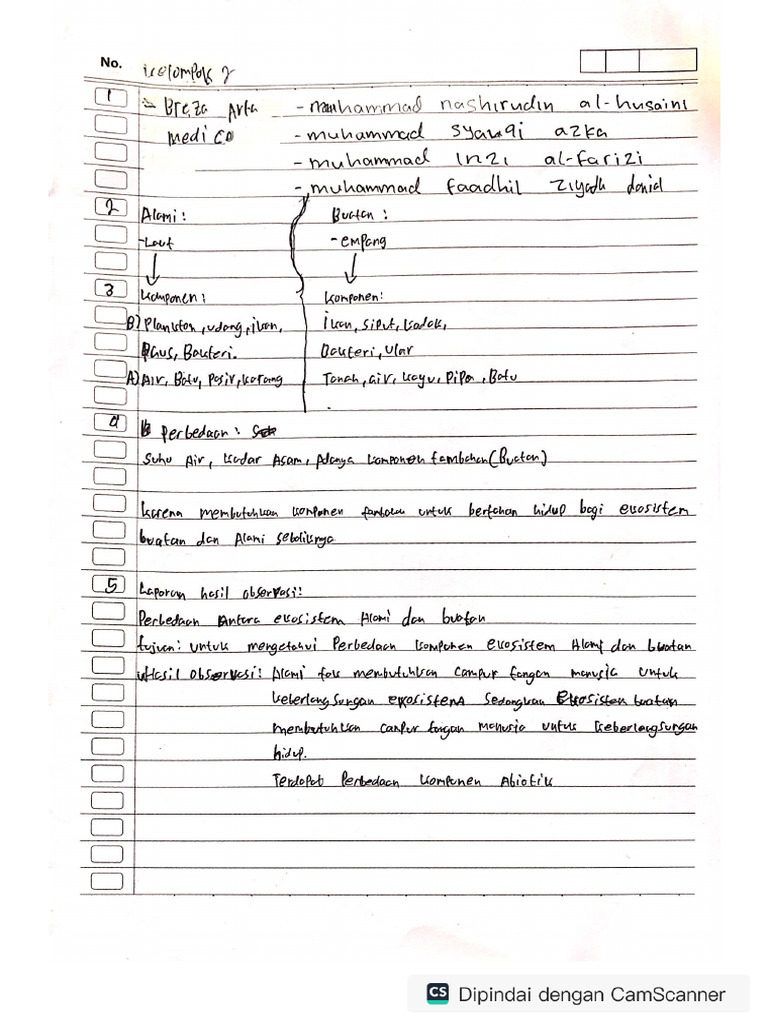 No. kelompok 2
1 - Breza Arta - muhammad nashirudin al-husaini
medico - muhammad syauqi azka
- muhammad inzi al-farizi
- muhammad faadhil ziyadh danid
2 Alami: Buatan:
-Laut -empang
3 Komponen: Komponen:
B) Plankton, udang, ikan, Ikan, siput, kodok,
Paus, Bakteri. Bakteri, ular
A) Air, Batu, pasir, karang Tanah, air, kayu, pipa, Batu
4 Perbedaan:
Suhu Air, kadar Asam, Adanya komponen tambahan (Buatan)
karena membutuhkan komponen untuk bertahan hidup bagi ekosistem
buatan dan Alami sebaliknya
5 Laporan hasil observasi:
Perbedaan Antara ekosistem Alami dan buatan
tujuan: untuk mengetahui Perbedaan komponen ekosistem Alami dan buatan
Hasil observasi: Alami tak membutuhkan campur tangan manusia untuk
keberlangsungan ekosistem sedangkan Ekosistem buatan
membutuhkan campur tangan manusia untuk keberlangsungan
hidup.
Terdapat Perbedaan komponen Abiotik
CS Dipindai dengan CamScanner